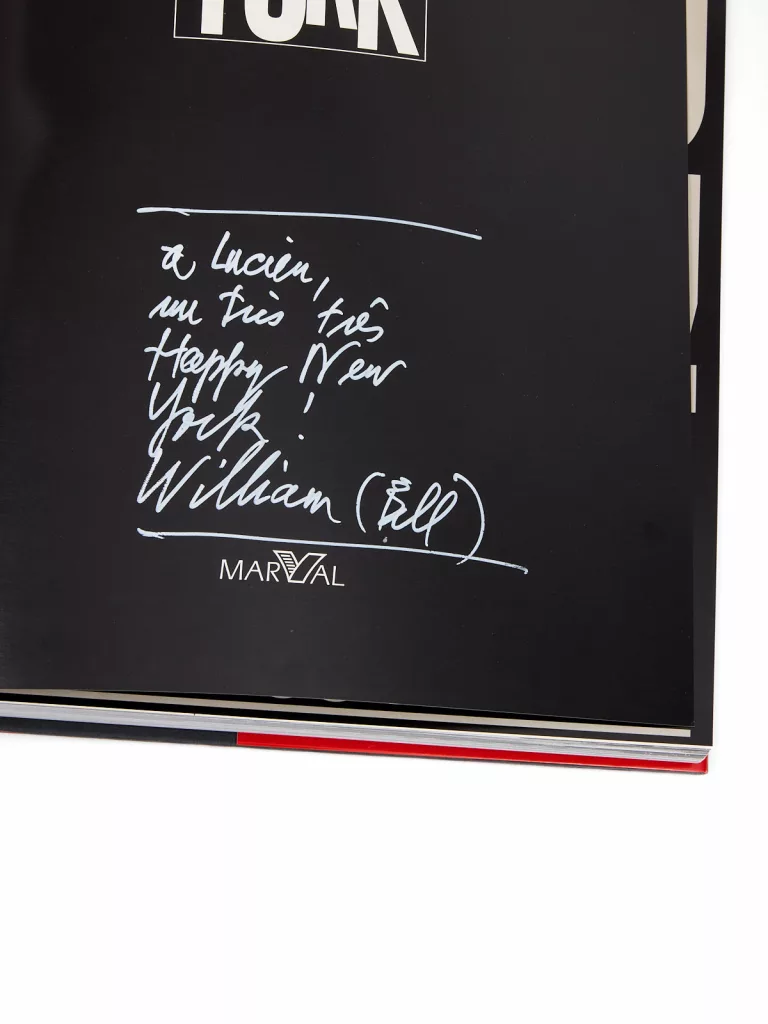 YORK
a Lucien,
un très três
Happy New
York !
William (Bill)
MARVAL